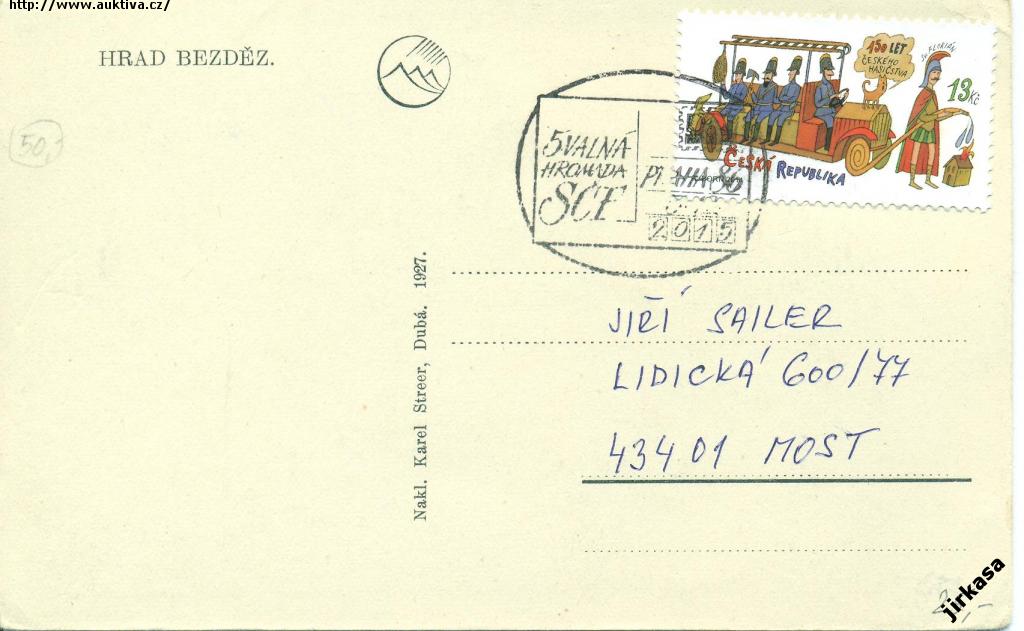 http://www.auktiva.cz/
HRAD BEZDĚZ.
50,-
150 LET
ČESKÉHO
HASIČSTVA
SV. FLORIÁN
13 Kč
ČESKÁ REPUBLIKA
5 VALNÁ
HROMADA
SČF
PRAHA 86
2015
Nakl. Karel Streer, Dubá. 1927.
JIŘÍ SAILER
LIDICKÁ 600/77
434 01 MOST
jirkasa